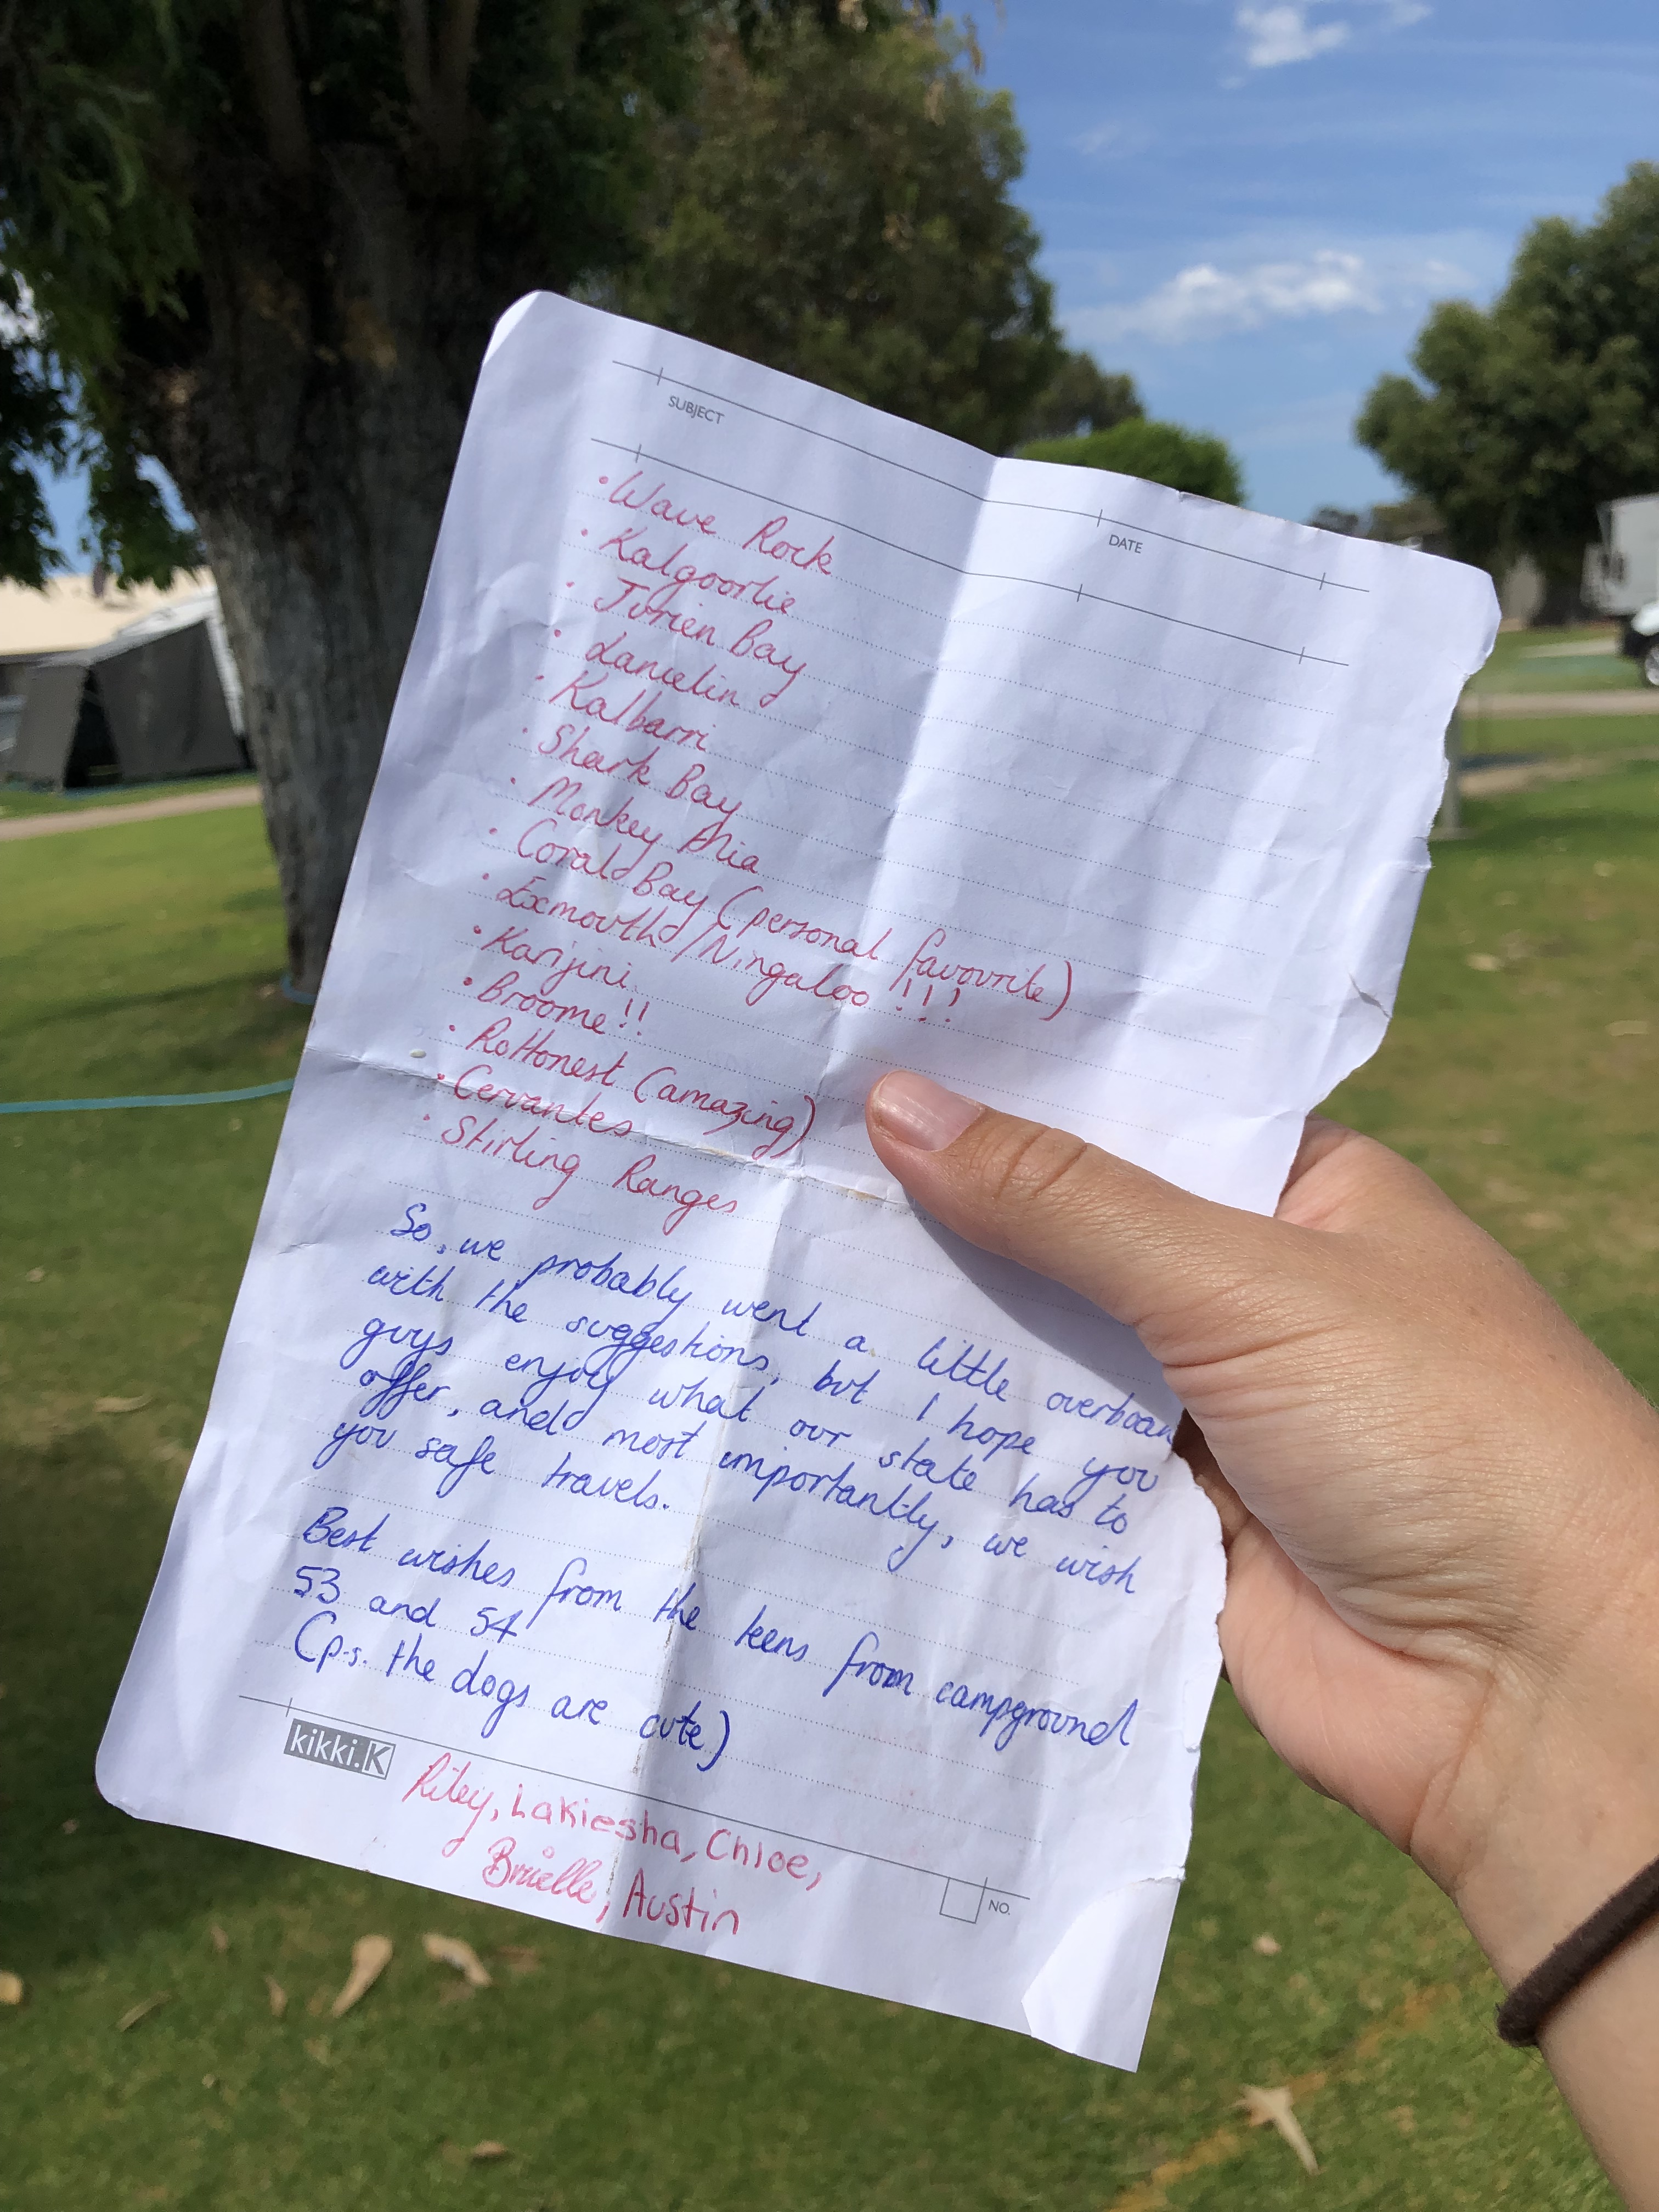 SUBJECT
DATE
• Wave Rock
• Kalgoorlie
• Jurien Bay
• Lancelin
• Kalbarri
• Shark Bay
• Monkey Mia
• Coral Bay (personal favourite)
• Exmouth / Ningaloo !!!
• Karijini
• Broome!!
• Rottonest (amazing)
• Cervantes
• Stirling Ranges
So, we probably went a little overboar
with the suggestions, but I hope you
guys enjoy what our state has to
offer, and most importantly, we wish
you safe travels.
Best wishes from the teens from campground
53 and 54
(p.s. the dogs are cute)
kikki.K
Riley, Lakiesha, Chloe,
Brielle, Austin
NO.